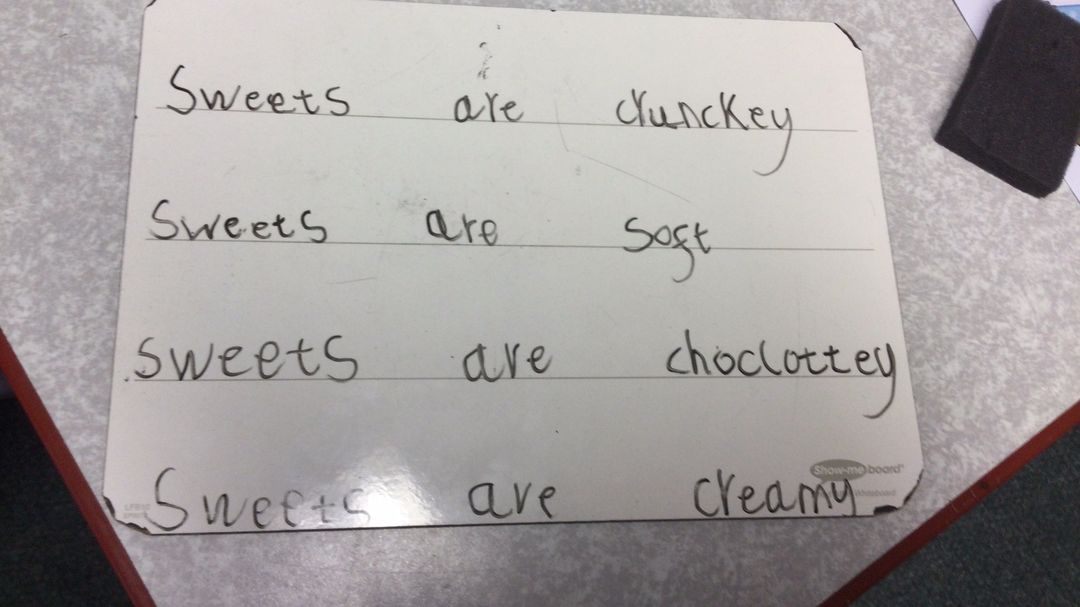 Sweets are crunckey
Sweets are Soft
sweets are choclottey
Show-me board
Sweets are creamy
Whiteboard